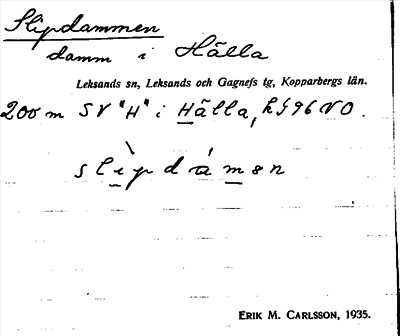 Slipdammen
damm i Hälla
Leksands sn, Leksands och Gagnefs tg, Kopparbergs län.
200 m SV "H" i Hälla, hg 96 NO.
slìpdámən
ERIK M. CARLSSON, 1935.